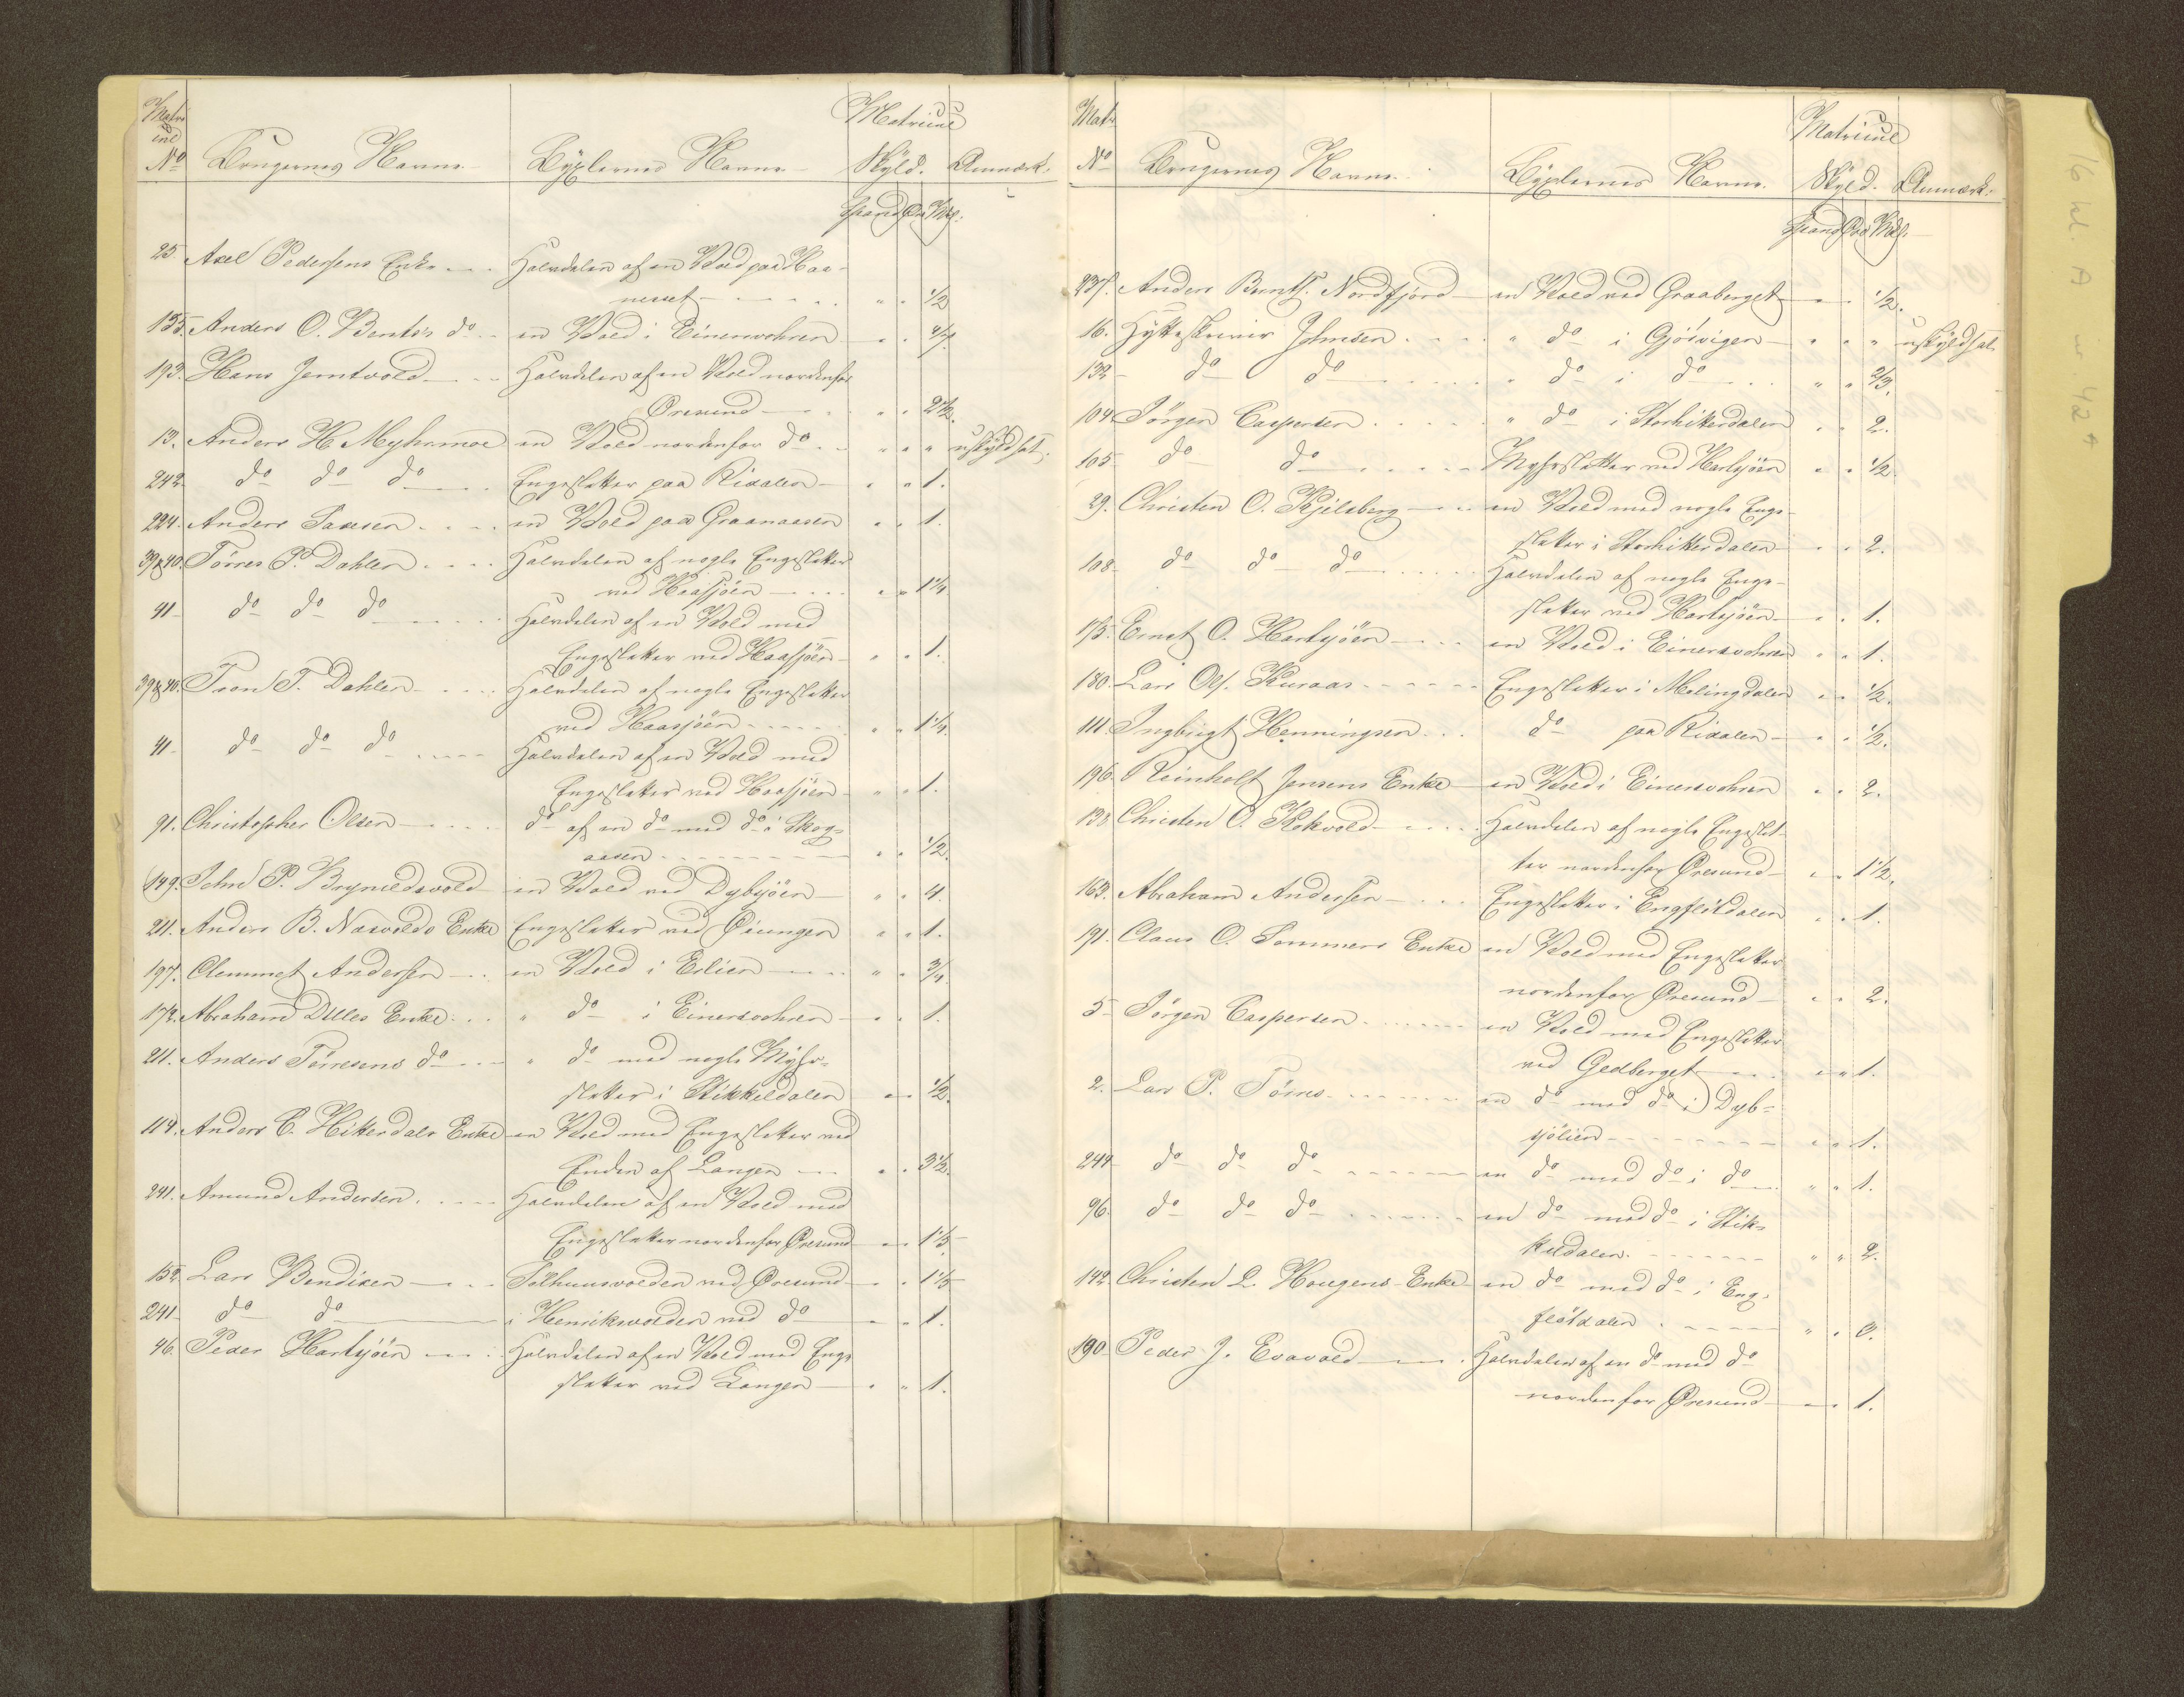 Matri
cul
No Brugernes Navne Bÿxlernes Navne Matricul Skÿld. Anmærk.
Spand Øre Mkl.
25 Axel Pedersens Enke Halvdelen af en Vold paa Haa-
nesset " " 1/2
155. Anders O. Bentes do en Vold i Einervohren " "
193. Hans Jemtvold Halvdelen af en Vold nordenfor
Øresund " " 2 1/2.
13. Anders H. Myhrmoe en Vold nordenfor do " " " uskÿldsat.
242. do do do Engesletter paa Rixalen " " 1.
224. Anders Saxsen en Vold paa Graanaasen " " 1.
39&40. Törres P. Dahlen Halvdelen af nogle Engesletter
ved Haasjöen " " 1 1/4
41 do do do Halvdelen af en Vold med
Engesletter ved Haasjöen " " 1.
39&40. Tron T. Dahlen Halvdelen af nogle Engesletter
ved Haasjöen " " 1 1/4
41 do do do Halvdelen af en Vold med
Engesletter ved Haasjöen " " 1.
91. Christopher Olsen do af en do med do i Skog-
aasen " " 1/2.
149. John P. Brynildsvold en Vold ved Dybsjöen " " 4.
211. Anders B. Nasvolds Enke Engesletter ved Øiungen " " 1.
197. Clemmet Andersen en Vold i Erlien " " 3/4.
172. Abraham Dilles Enke " do i Einervohren " " 1.
211. Anders Törresens do " do med nogle Mÿhr-
sletter i Stikkildalen " " 1/2.
114. Anders C. Hitterdals Enke en Vold med Engesletter ved
Enden af Langen " " 3 1/2.
241. Amund Andersen Halvdelen af en Vold med
Engesletter nordenfor Øresund " " 1 1/3
152. Lars Bendixen Fælhuusvolden ved Øresund " " 1 1/3
241 do do i Henrikvolden ved do " " 1.
46. Peder Harbsjöen Halvdelen af en Vold med Enge-
sletter ved Langen " " 1.
Matr.
No Brugernes Navne. Bÿxlernes Navne. Matricul Skÿld. Anmærk.
Spand Øre Mkl.
237. Anders Berntss. Nordfjord en Vold ved Graaberget " " 1/2.
16. Hÿtteskriver Johnsen " do i Gjösvigen " " " uskÿldsat.
132 do do " do i do " " 2/3.
104. Jörgen Caspersen " do i Storhitterdalen " " 2.
105 do do Myhrsletter ved Harsjöen " " 1/2.
29. Christen O. Kjelsberg en Vold med nogle Enge-
sletter i Storhitterdalen " " 2.
108 do do do Halvdelen af nogle Enge-
sletter ved Harsjöen " " 1.
175. Ernst O. Harbsjöen en Vold i Einervohren " " 1.
180. Lars Ols. Kuraas Engesletter i Molingdalen " " 1/2.
111. Ingbrigt Henningsen do paa Rixalen " " 1/2.
196. Reinholt Jensens Enke en Vold i Einervohren " " 2.
138 Christen O. Kokvold Halvdelen af nogle Engeslet-
ter nordenfor Øresund " " 1 1/2.
163. Abraham Andersen Engesletter i Engflötdalen " " 1.
191. Claus O. Sommers Enke en Vold med Engesletter
nordenfor Øresund " " 2.
5 Jörgen Caspersen en Vold med Engesletter
ved Gedberget " " 1.
2. Lars P. Törres en do med do i Dyb-
sjölien " " 1.
244 do do do en do med do i do " " 1.
96. do do do en do med do i Stik-
kildalen " " 2.
142. Christen L. Hougens Enke en do med do i Eng-
flötdalen " "
190 Peder J. Evavold Halvdelen af en do med do
nordenfor Øresund " " 1.
16 kl. A nr. 42